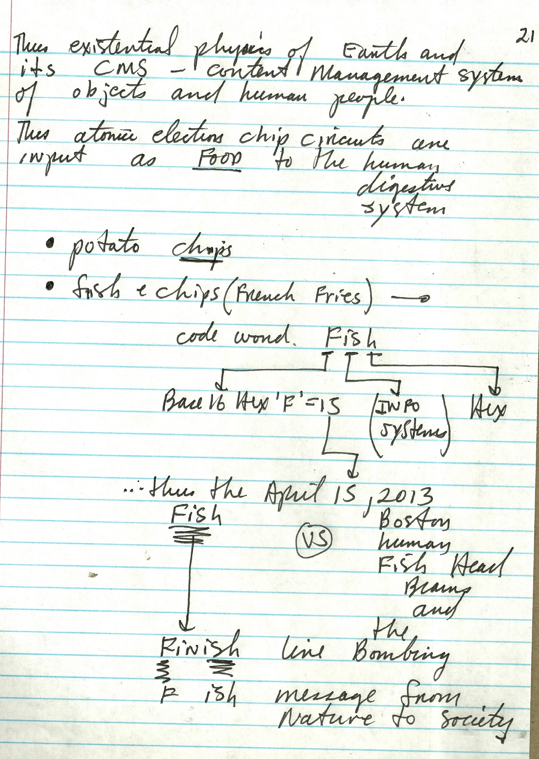 21
Thus existential physics of Earth and
its CMS - content Management system
of objects and human people.
Thus atomic electron chip circuits are
input as FOOD to the human
digestive
system
• potato chips
• fish & chips (French Fries) →
code word. Fish
Base 16 Hex 'F' = 15 (INFO Hex
systems)
∴ thus the April 15, 2013
Fish Boston
VS human
Fish Head
Brains
and
the
Finish line Bombing
F ish message from
Nature to Society